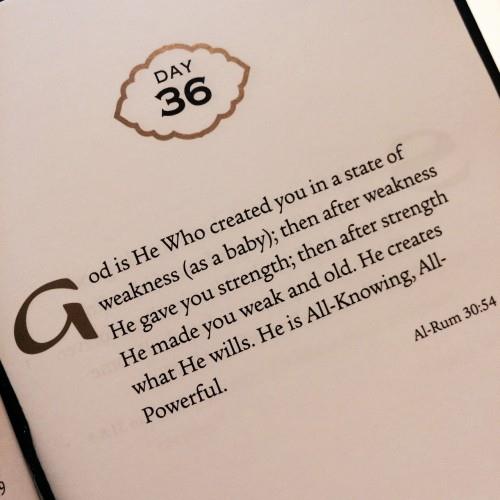 DAY
36
God is He Who created you in a state of
weakness (as a baby); then after weakness
He gave you strength; then after strength
He made you weak and old. He creates
what He wills. He is All-Knowing, All-
Powerful.
Al-Rum 30:54
9